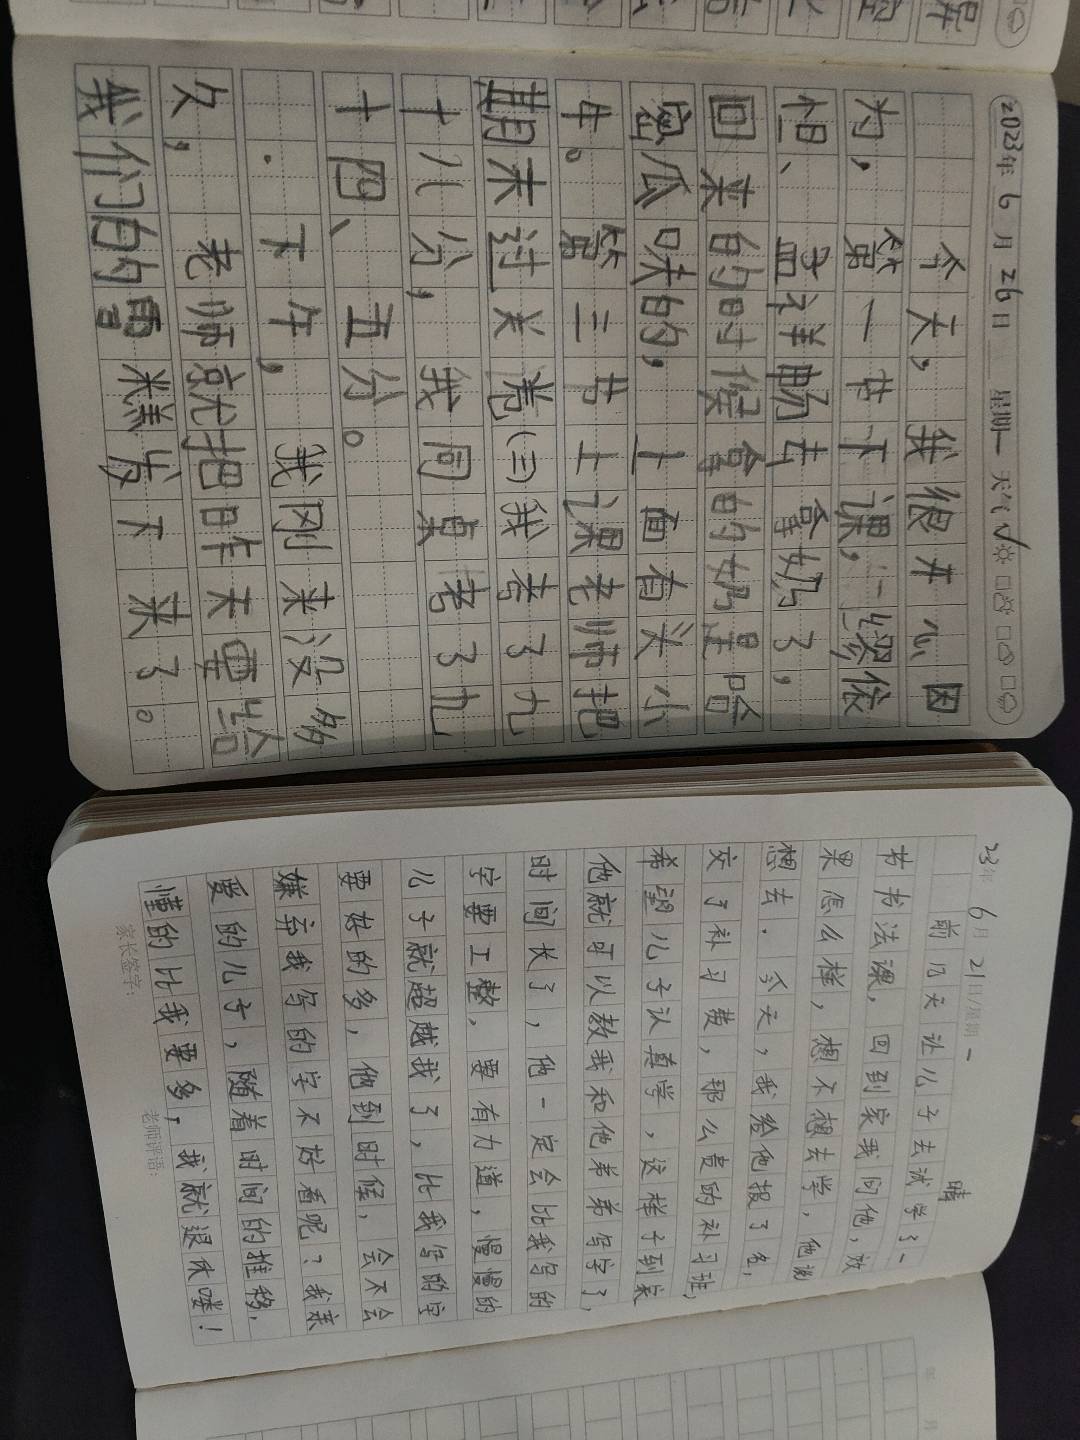 2023年 6月 26日 星期一 天气 ✓
今天,我很开心因
为,第一节下课,缪依
恒、孟祥畅去拿奶了,
回来的时候拿的奶是哈
密瓜味的,上面有头小
牛。第三节上课老师把
期末过关卷(三)我考了九
十八分,我同桌考了九
十四、五分。
. 下午,我刚来没多
久,老师就把昨天要给
我们的雪糕发下来了。
23年 6月 21日/星期一 晴
前几天让儿子去试学了一
节书法课,回到家我问他,效
果怎么样,想不想去学,他说
想去.今天,我给他报了名,
交了补习费,那么贵的补习班,
希望儿子认真学,这样子到家
他就可以教我和他弟弟写字了,
时间长了,他一定会比我写的
字要工整,要有力道,慢慢的
儿子就超越我了,比我写的字
要好的多,他到时候,会不会
嫌弃我写的字不好看呢?我亲
爱的儿子,随着时间的推移.
懂的比我要多,我就退休喽!
家长签字: 老师评语: